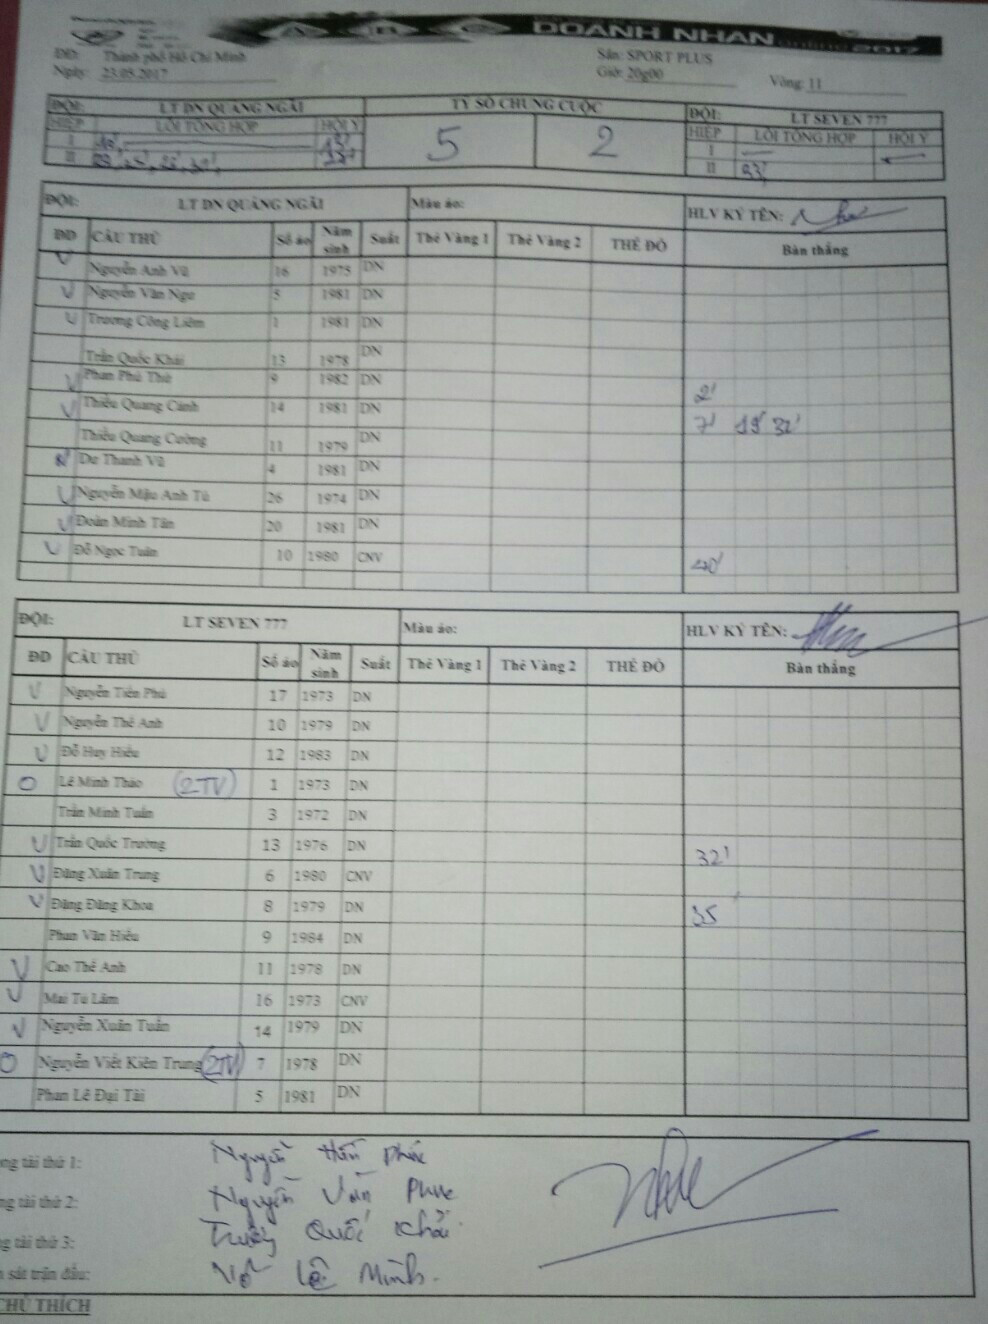 DOANH NHAN online 2017
ĐĐ: Thành phố Hồ Chí Minh Sân: SPORT PLUS
Ngày: 23.05.2017 Giờ: 20g00 Vòng: 11
ĐỘI: LT DN QUẢNG NGÃI TỶ SỐ CHUNG CUỘC ĐỘI: LT SEVEN 777
HIỆP LỖI TỔNG HỢP HỘI Ý 5 2 HIỆP LỖI TỔNG HỢP HỘI Ý
I I
II II
ĐỘI: LT DN QUẢNG NGÃI Màu áo: HLV KÝ TÊN:
ĐD CẦU THỦ Số áo Năm sinh Suất Thẻ Vàng 1 Thẻ Vàng 2 THẺ ĐỎ Bàn thắng
V Nguyễn Anh Vũ 16 1975 DN
V Nguyễn Văn Ngu 5 1981 DN
V Trương Công Liêm 1 1981 DN
Trần Quốc Khải 13 1978 DN
V Phan Phú Thứ 9 1982 DN 2'
V Thiều Quang Cảnh 14 1981 DN 7' 19' 32'
Thiều Quang Cường 11 1979 DN
Dư Thanh Vũ 4 1981 DN
V Nguyễn Mậu Anh Tú 26 1974 DN
V Đoàn Minh Tân 20 1981 DN
V Đỗ Ngọc Tuân 10 1980 CNV 40'
ĐỘI: LT SEVEN 777 Màu áo: HLV KÝ TÊN:
ĐD CẦU THỦ Số áo Năm sinh Suất Thẻ Vàng 1 Thẻ Vàng 2 THẺ ĐỎ Bàn thắng
V Nguyễn Tiên Phú 17 1973 DN
V Nguyễn Thế Anh 10 1979 DN
V Đỗ Huy Hiêu 12 1983 DN
O Lê Minh Thảo (2TV) 1 1973 DN
Trần Minh Tuấn 3 1972 DN
V Trần Quốc Trường 13 1976 DN 32'
V Đặng Xuân Trung 6 1980 CNV
V Đặng Đăng Khoa 8 1979 DN 35'
Phan Văn Hiêu 9 1984 DN
V Cao Thế Anh 11 1978 DN
V Mai Tú Lâm 16 1973 CNV
V Nguyễn Xuân Tuấn 14 1979 DN
O Nguyễn Viết Kiên Trung (2TV) 7 1978 DN
Phan Lê Đại Tài 5 1981 DN
tài thứ 1: Nguyễn
tài thứ 2: Nguyễn Văn Phúc
tài thứ 3: Quốc Khải
sát trận đấu: Võ Lê Minh.
CHÚ THÍCH